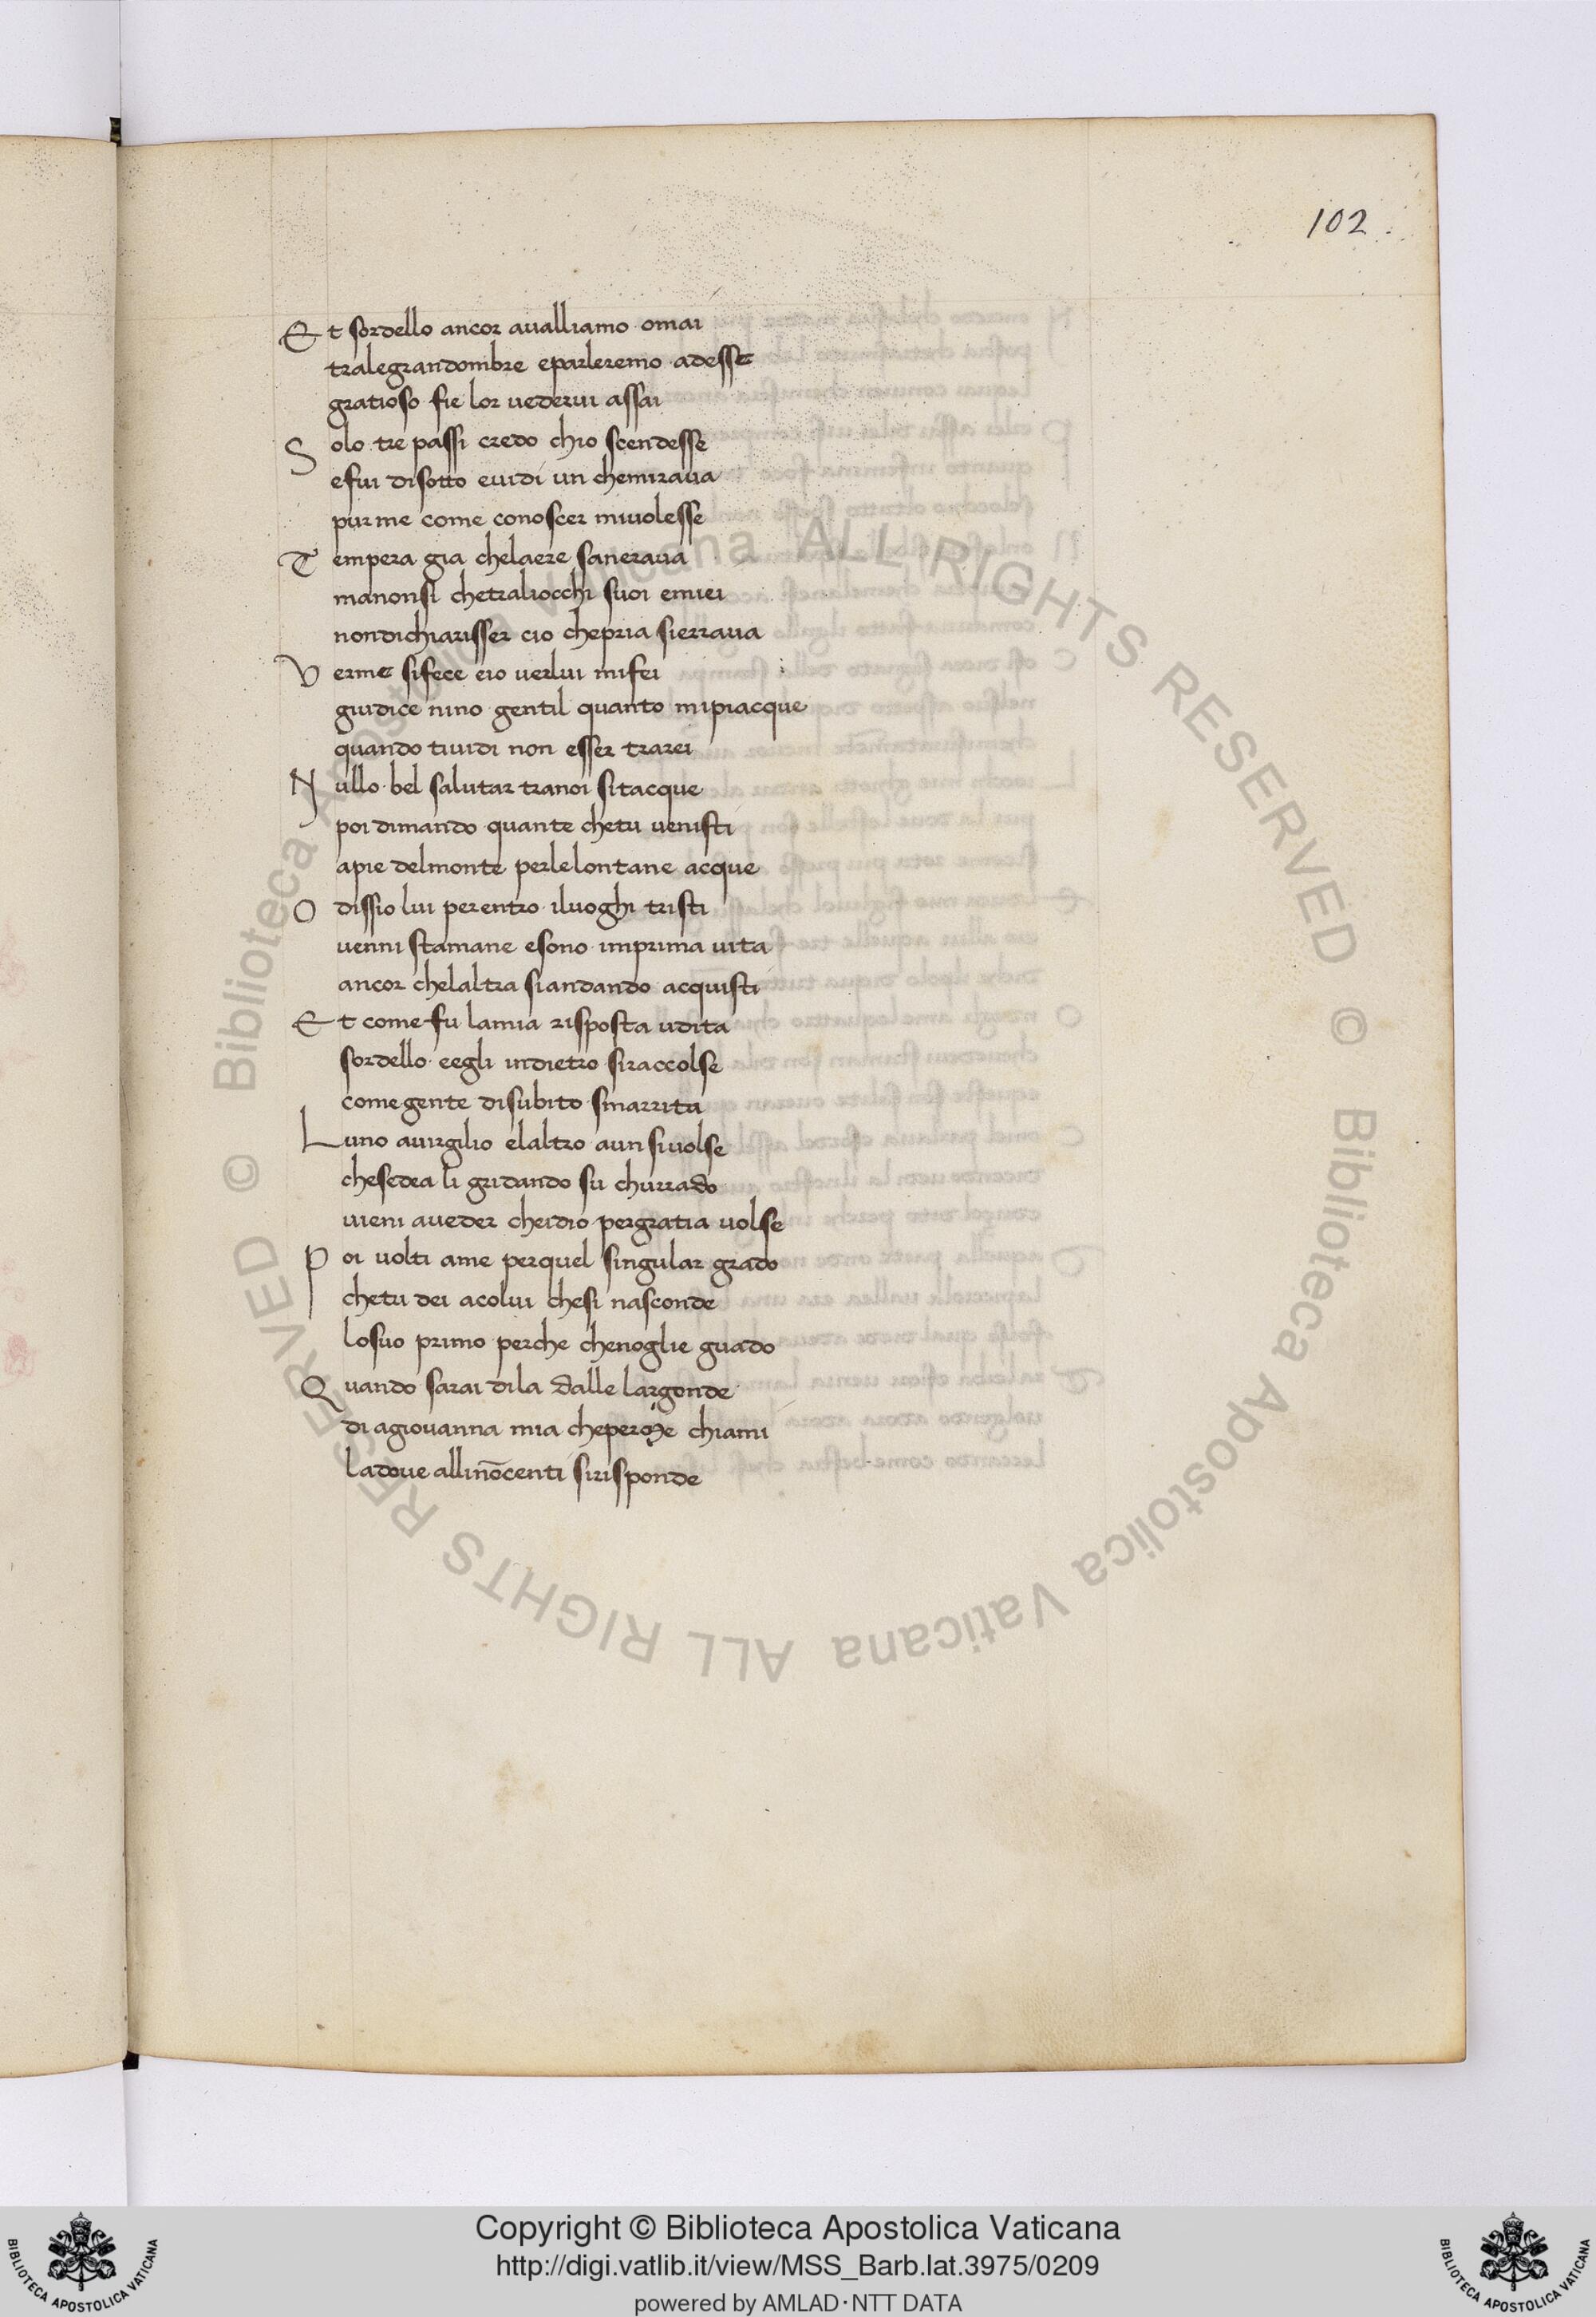 102
Et sordello ancor aualliamo omai
tralegrandombre eparleremo adesse
gratioso fie lor uederui assai
Solo tre passi credo chio scendesse
efui disotto euidi un chemiraua
pur me come conoscer miuolesse
Tempera gia chelaere saneraua
manonsi chetraliocchi suoi emiei
nondichiarisser cio chepria sierraua
Verme sifece eio uerlui mifei
giudice nino gentil quanto mipiacque
quando tiuidi non esser trarei
Nullo bel salutar tranoi sitacque
poi dimando quante chetu uenisti
apie delmonte perlelontane acque
O dissio lui perentro iluoghi tristi
uenni stamane esono imprima uita
ancor chelaltra siandando acquisti
Et come fu lamia risposta udita
sordello eegli indietro siraccolse
come gente disubito smarrita
Luno auirgilio elaltro aun siuolse
chesedea li gridando su churrado
uieni aueder cheidio pergratia uolse
Poi uolti ame perquel singular grado
chetu dei acolui chesi nasconde
losuo primo perche chenoglie guado
Quando sarai dila dalle largonde
di agiouanna mia cheperome chiami
ladoue allinōcenti sirisponde
© Biblioteca Apostolica Vaticana ALL RIGHTS RESERVED © Biblioteca Apostolica Vaticana ALL RIGHTS RESERVED
Copyright © Biblioteca Apostolica Vaticana
http://digi.vatlib.it/view/MSS_Barb.lat.3975/0209
powered by AMLAD·NTT DATA
BIBLIOTECA APOSTOLICA VATICANA
BIBLIOTECA APOSTOLICA VATICANA